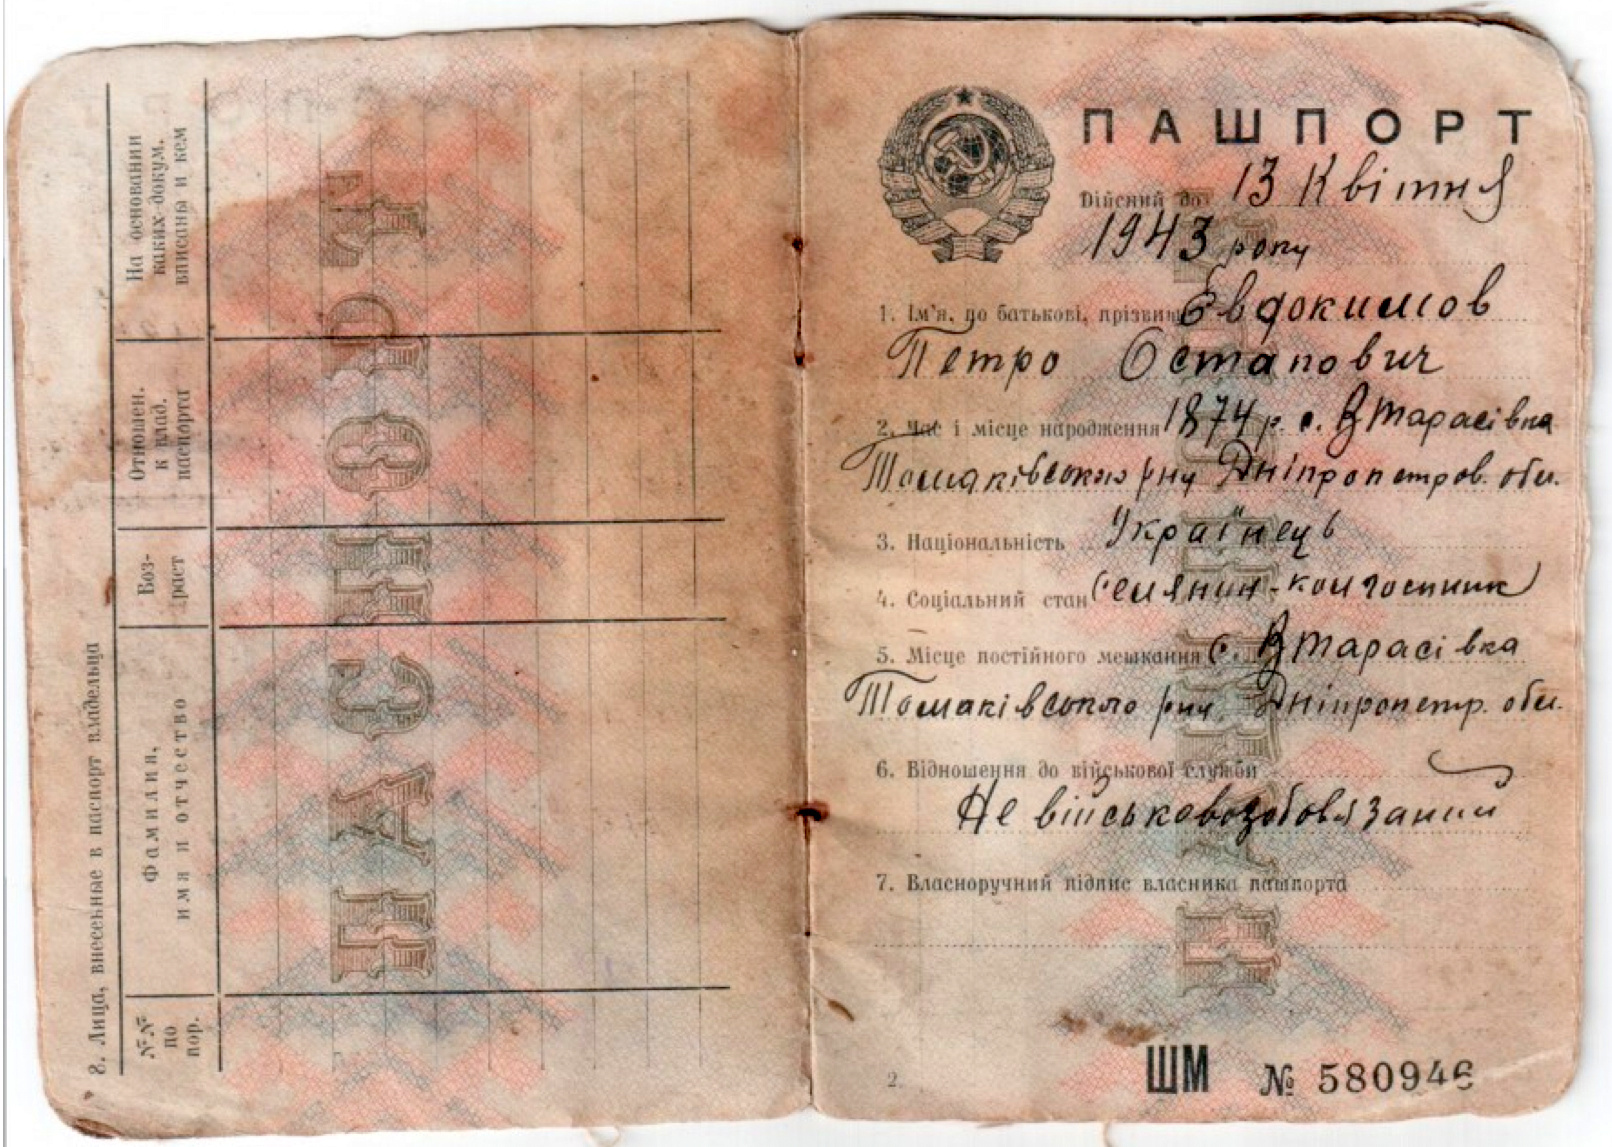 8. Лица, внесенные в паспорт владельца
№№
по
пор.
Фамилия,
имя и отчество
Воз-
раст
Отношен.
к влад.
паспорта
На основании
каких докум.
вписаны и кем
ПАСПОРТ
ПАШПОРТ
Дійсний до 13 Квітня
1943 року
1. Ім'я, по батькові, прізвище Евдокимов
Петро Остапович
2. Час і місце народження 1874 р. с. В Тарасівка
Томаківського р-ну Дніпропетров. обл.
3. Національність Українець
4. Соціальний стан Селянин-колгоспник
5. Місце постійного мешкання с. В Тарасівка
Томаківського р-ну. Дніпропетр. обл.
6. Відношення до військової служби
Не військовозобовязаний
7. Власноручний підпис власника пашпорта
2.
ШМ № 580946